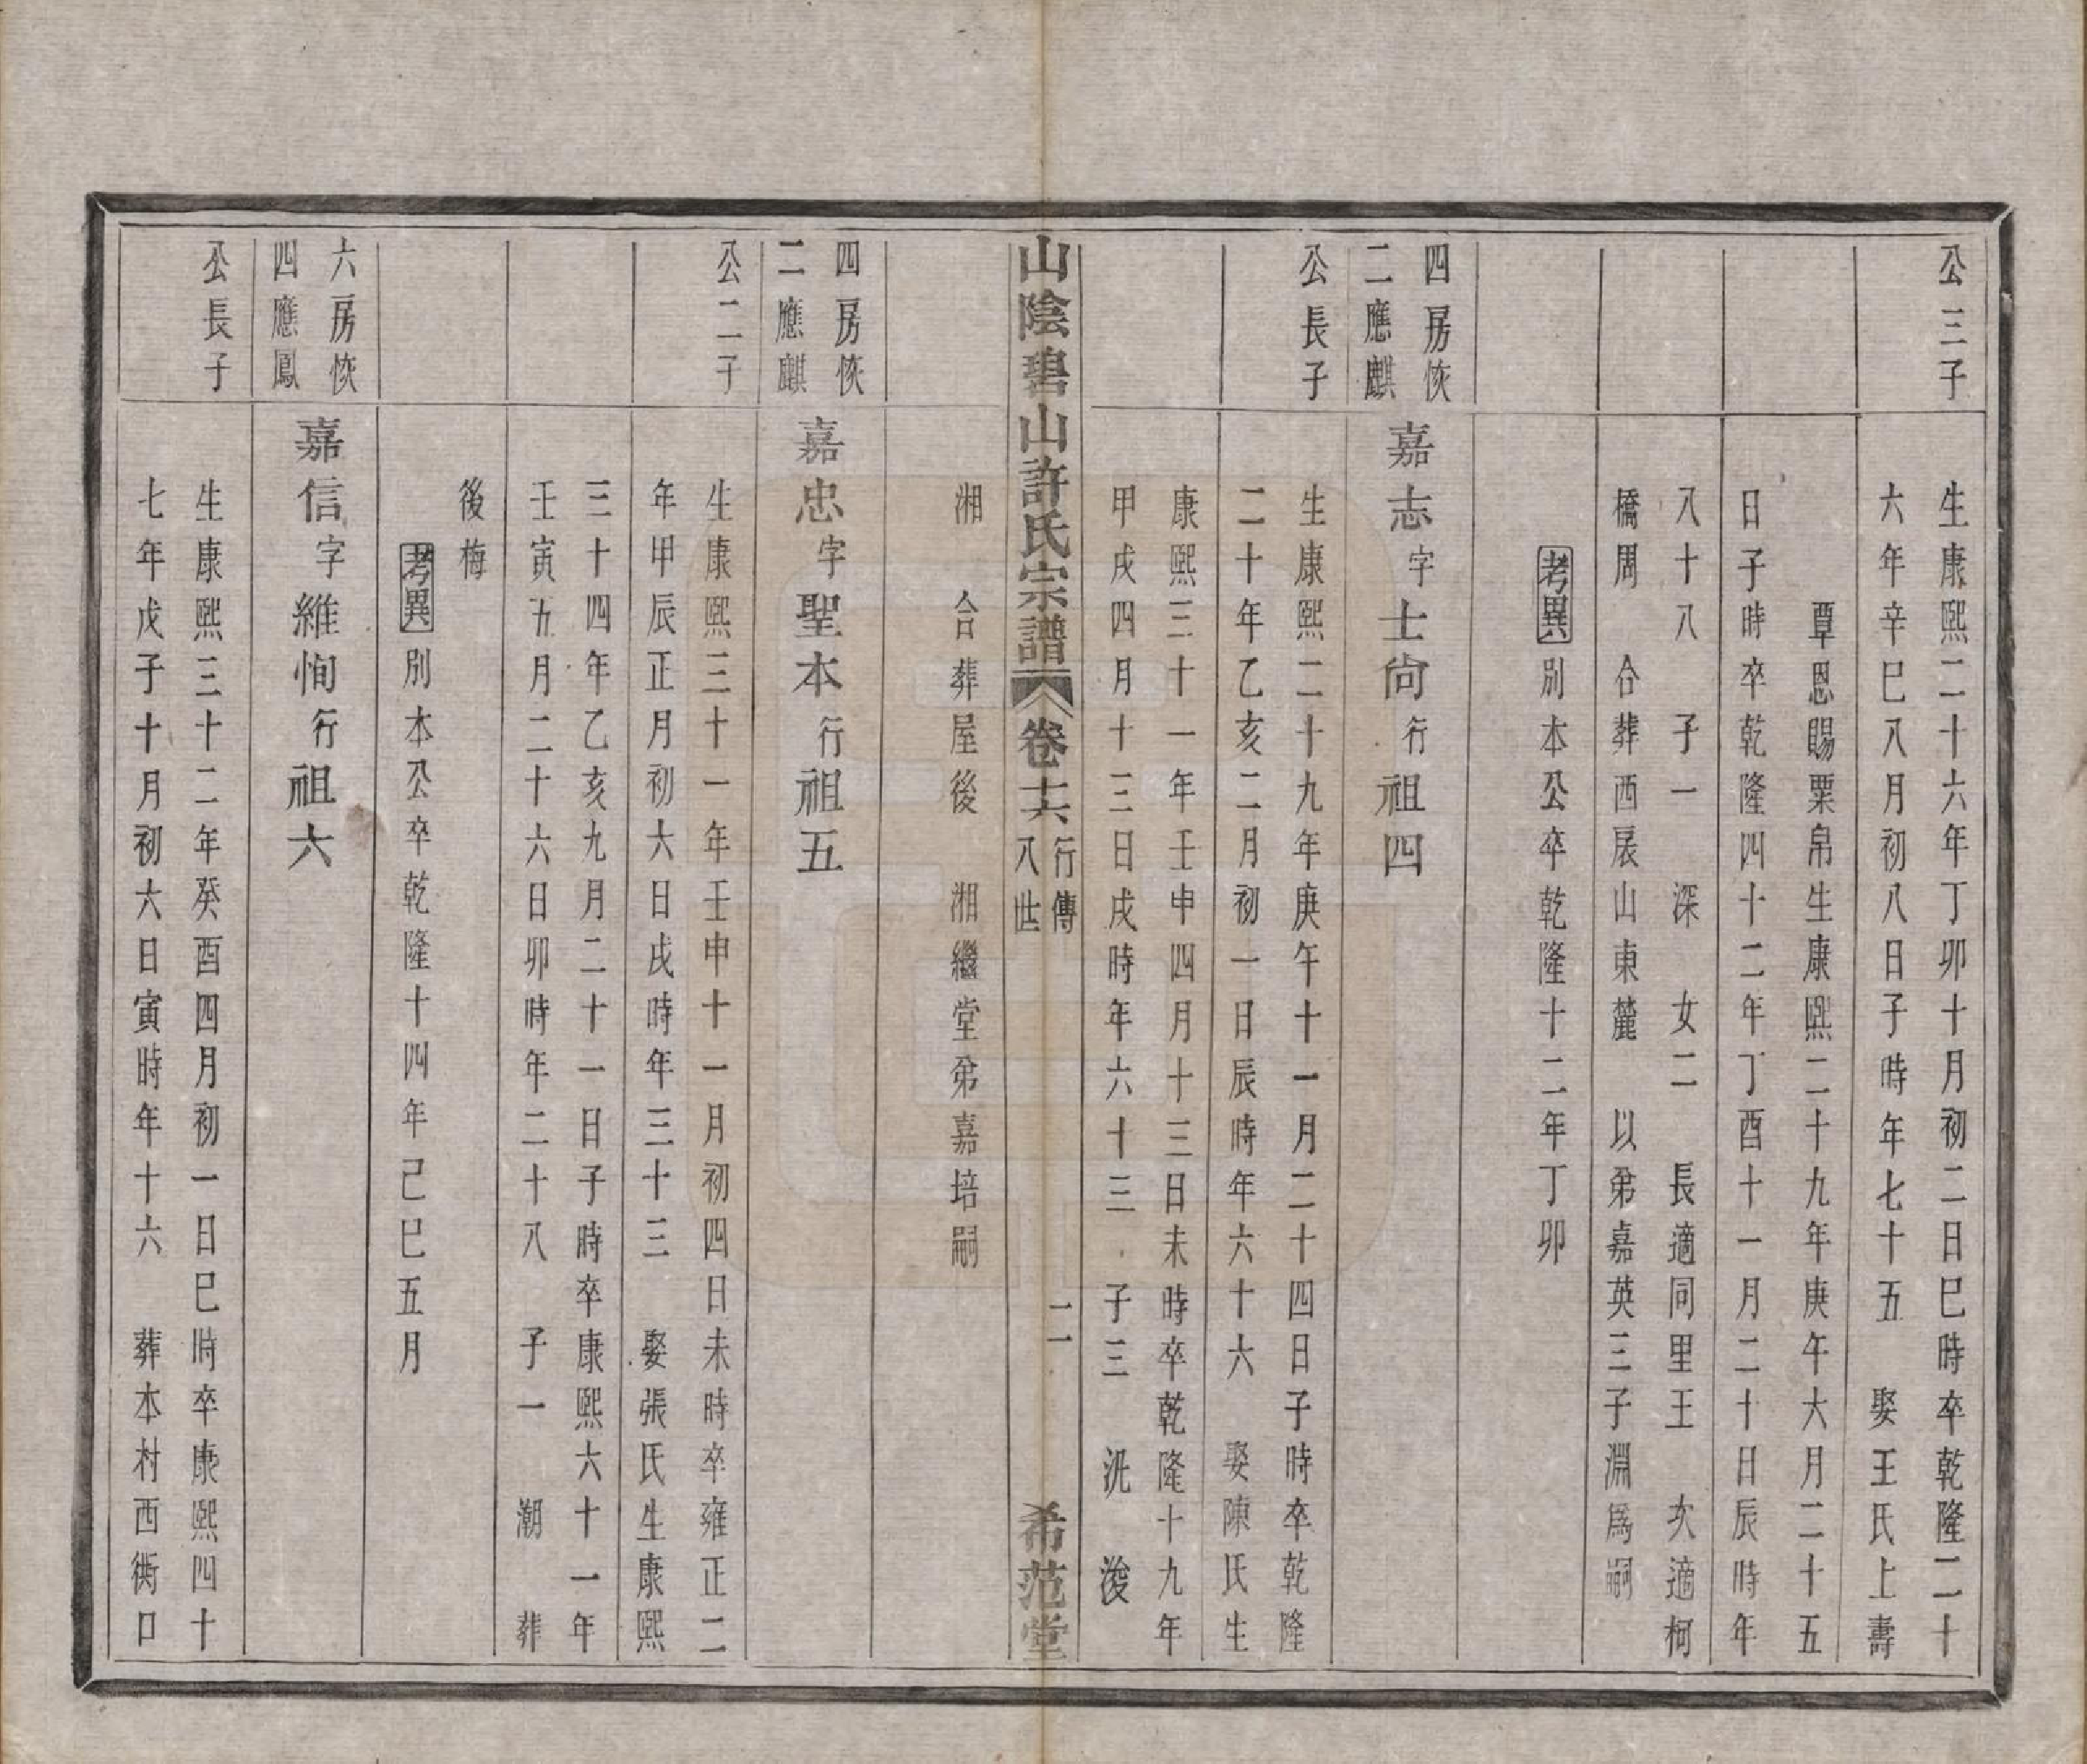 公三子
生康熙二十六年丁卯十月初二日巳時卒乾隆二十
六年辛巳八月初八日子時年七十五　娶王氏上壽
覃恩賜粟帛生康熙二十九年庚午六月二十五
日子時卒乾隆四十二年丁酉十一月二十日辰時年
八十八　子一　深　女二　長適同里王　次適柯
橋周　合葬西扆山東麓　以弟嘉英三子淵爲嗣
考異　別本公卒乾隆十二年丁卯
四房恢
二應麒
嘉志字士尙行祖四
公長子
生康熙二十九年庚午十一月二十四日子時卒乾隆
二十年乙亥二月初一日辰時年六十六　娶陳氏生
康熙三十一年壬申四月十三日未時卒乾隆十九年
甲戌四月十三日戌時年六十三　子三　沇　浚
湘　合葬屋後　湘繼堂弟嘉培嗣
山陰碧山許氏宗譜　卷十六　行傳
八世　二　希范堂
四房恢
二應麒
嘉忠字聖本行祖五
公二子
生康熙三十一年壬申十一月初四日未時卒雍正二
年甲辰正月初六日戌時年三十三　娶張氏生康熙
三十四年乙亥九月二十一日子時卒康熙六十一年
壬寅五月二十六日卯時年二十八　子一　潮　葬
後梅
考異　別本公卒乾隆十四年己巳五月
六房恢
四應鳳
嘉信字維恂行祖六
公長子
生康熙三十二年癸酉四月初一日巳時卒康熙四十
七年戊子十月初六日寅時年十六　葬本村西衖口